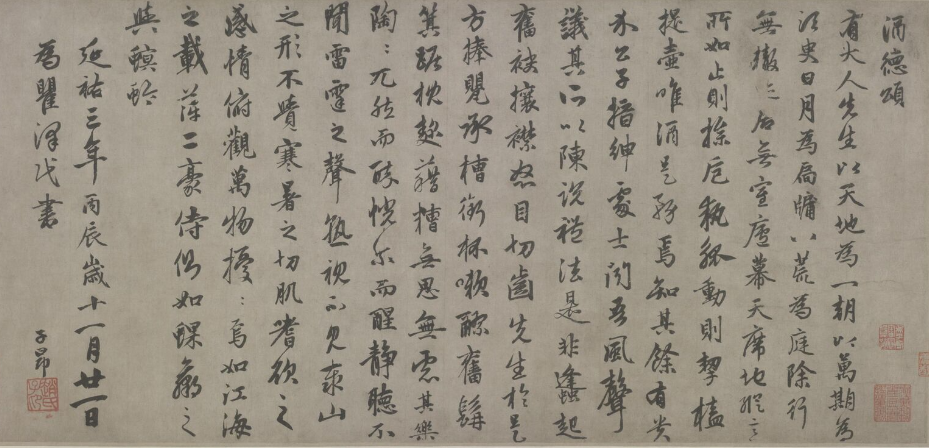 酒德頌
有大人先生以天地為一朝以萬期為
須臾日月為扃牖八荒為庭除行
無轍迹居無室廬幕天席地縱意
所如止則操卮執觚動則挈榼
提壺唯酒是務焉知其餘有貴
介公子搢紳處士聞吾風聲
議其所以陳說禮法是非蜂起
奮袂攘襟怒目切齒先生於是
方捧甖承槽銜杯嗽醪奮髯
箕踞枕麴藉糟無思無慮其樂
陶〻兀然而醉恍尔而醒靜聴不
聞雷霆之聲熟視不見泰山
之形不覺寒暑之切肌嗜欲之
感情俯觀萬物擾〻焉如江海
之載萍二豪侍側如蜾蠃之
與螟蛉
延祐三年丙辰歲十一月廿一日
為瞿澤民書
子昂